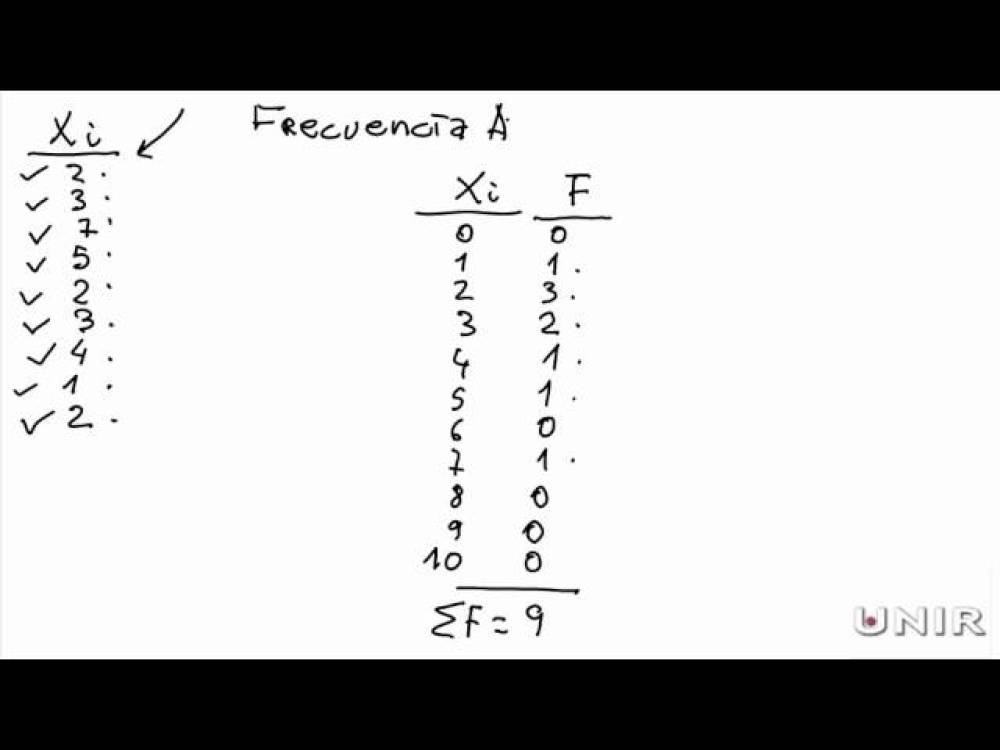 Xi
✓ 2 .
✓ 3 .
✓ 7 '
✓ 5 .
✓ 2 .
✓ 3 .
✓ 4 .
✓ 1 .
✓ 2 .
Frecuencia A
Xi F
0 0
1 1 .
2 3 .
3 2 .
4 1 .
5 1 .
6 0
7 1 .
8 0
9 0
10 0
ΣF = 9
UNIR